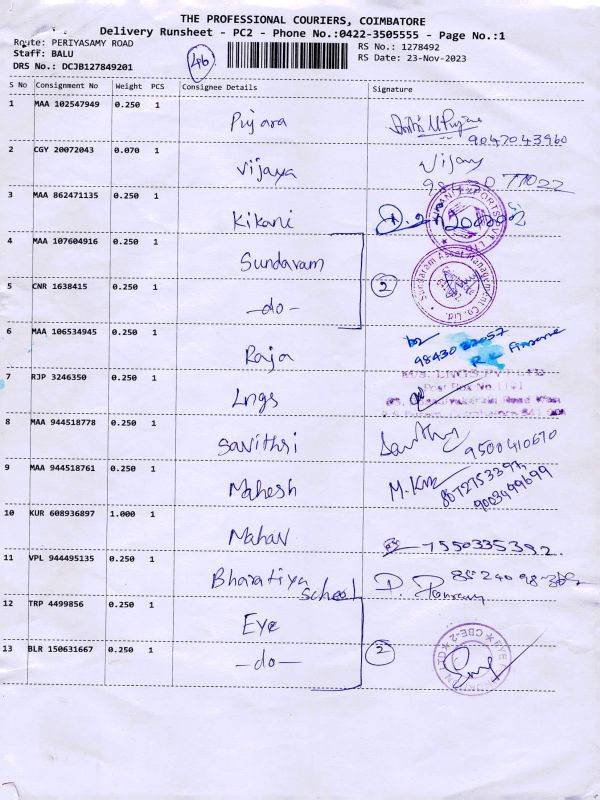 THE PROFESSIONAL COURIERS, COIMBATORE
Delivery Runsheet - PC2 - Phone No.:0422-3505555 - Page No.:1
Route: PERIYASAMY ROAD
RS No.: 1278492
Staff: BALU
46
RS Date: 23-Nov-2023
DRS No.: DCJB127849201
S No Consignment No Weight PCS Consignee Details Signature
1 MAA 102547949 0.250 1 Pujara 9047043960
2 CGY 20072043 0.070 1 Vijaya Vijay
3 MAA 862471135 0.250 1 Kikani
4 MAA 107604916 0.250 1 Sundaram
Sundaram Asset Management Co Ltd.
5 CNR 1638415 0.250 1 -do- 2
6 MAA 106534945 0.250 1 Raja
7 RJP 3246350 0.250 1 Lngs
8 MAA 944518778 0.250 1 Savithri 9500410670
9 MAA 944518761 0.250 1 Mahesh M.Km
9003499699
10 KUR 608936897 1.000 1 Mahav 7550335392.
11 VPL 944495135 0.250 1 Bharatiya School D.
12 TRP 4499856 0.250 1 Eye
13 BLR 150631667 0.250 1 -do- 2
CBE-2